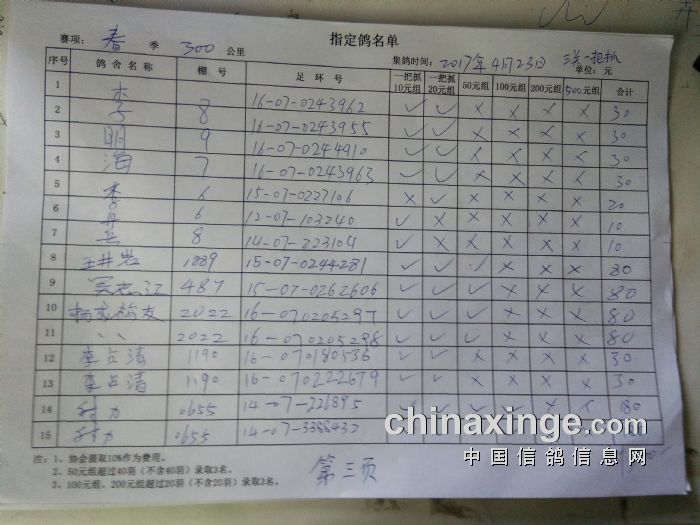 指定鸽名单
赛项: 春 季 300 公里 集鸽时间: 2017年4月23日 三关一把抓
单位: 元
序号 鸽舍名称 棚号 足环号 一把抓10元组 一把抓20元组 50元组 100元组 200元组 500元组 合计
1 李 8 16-07-0243962 ✓ ✓ × × × × 30
2 子 9 16-07-0243955 ✓ ✓ × × × × 30
3 明 7 16-07-0244910 ✓ ✓ × × × × 30
4 海 16-07-0243963 ✓ ✓ × × × × 30
5 李 6 15-07-0227106 × ✓ × × × × 20
6 丹 6 12-07-103240 ✓ × × × × × 10
7 兵 8 14-07-223104 ✓ × × × × × 10
8 王井岩 1889 15-07-0244281 ✓ ✓ ✓ × × × 80
9 487 15-07-0262606 ✓ ✓ ✓ × × × 80
10 2022 16-070205297 ✓ ✓ ✓ × × × 80
11 〃 2022 16-070205298 ✓ ✓ ✓ × × × 80
12 李占清 1190 16-070180536 ✓ ✓ × × × × 30
13 李占清 1190 16-070222679 ✓ ✓ × × × × 30
14 0655 14-07-226895 ✓ ✓ ✓ ✓ × × 180
15 0655 14-07-3388432
注: 1、协会提取10%作为费用。
2、50元组超过40羽(不含40羽)录取3名。
3、100元组、200元组超过20羽(不含20羽)录取3名。
第三页
chinaxinge.com
中国信鸽信息网